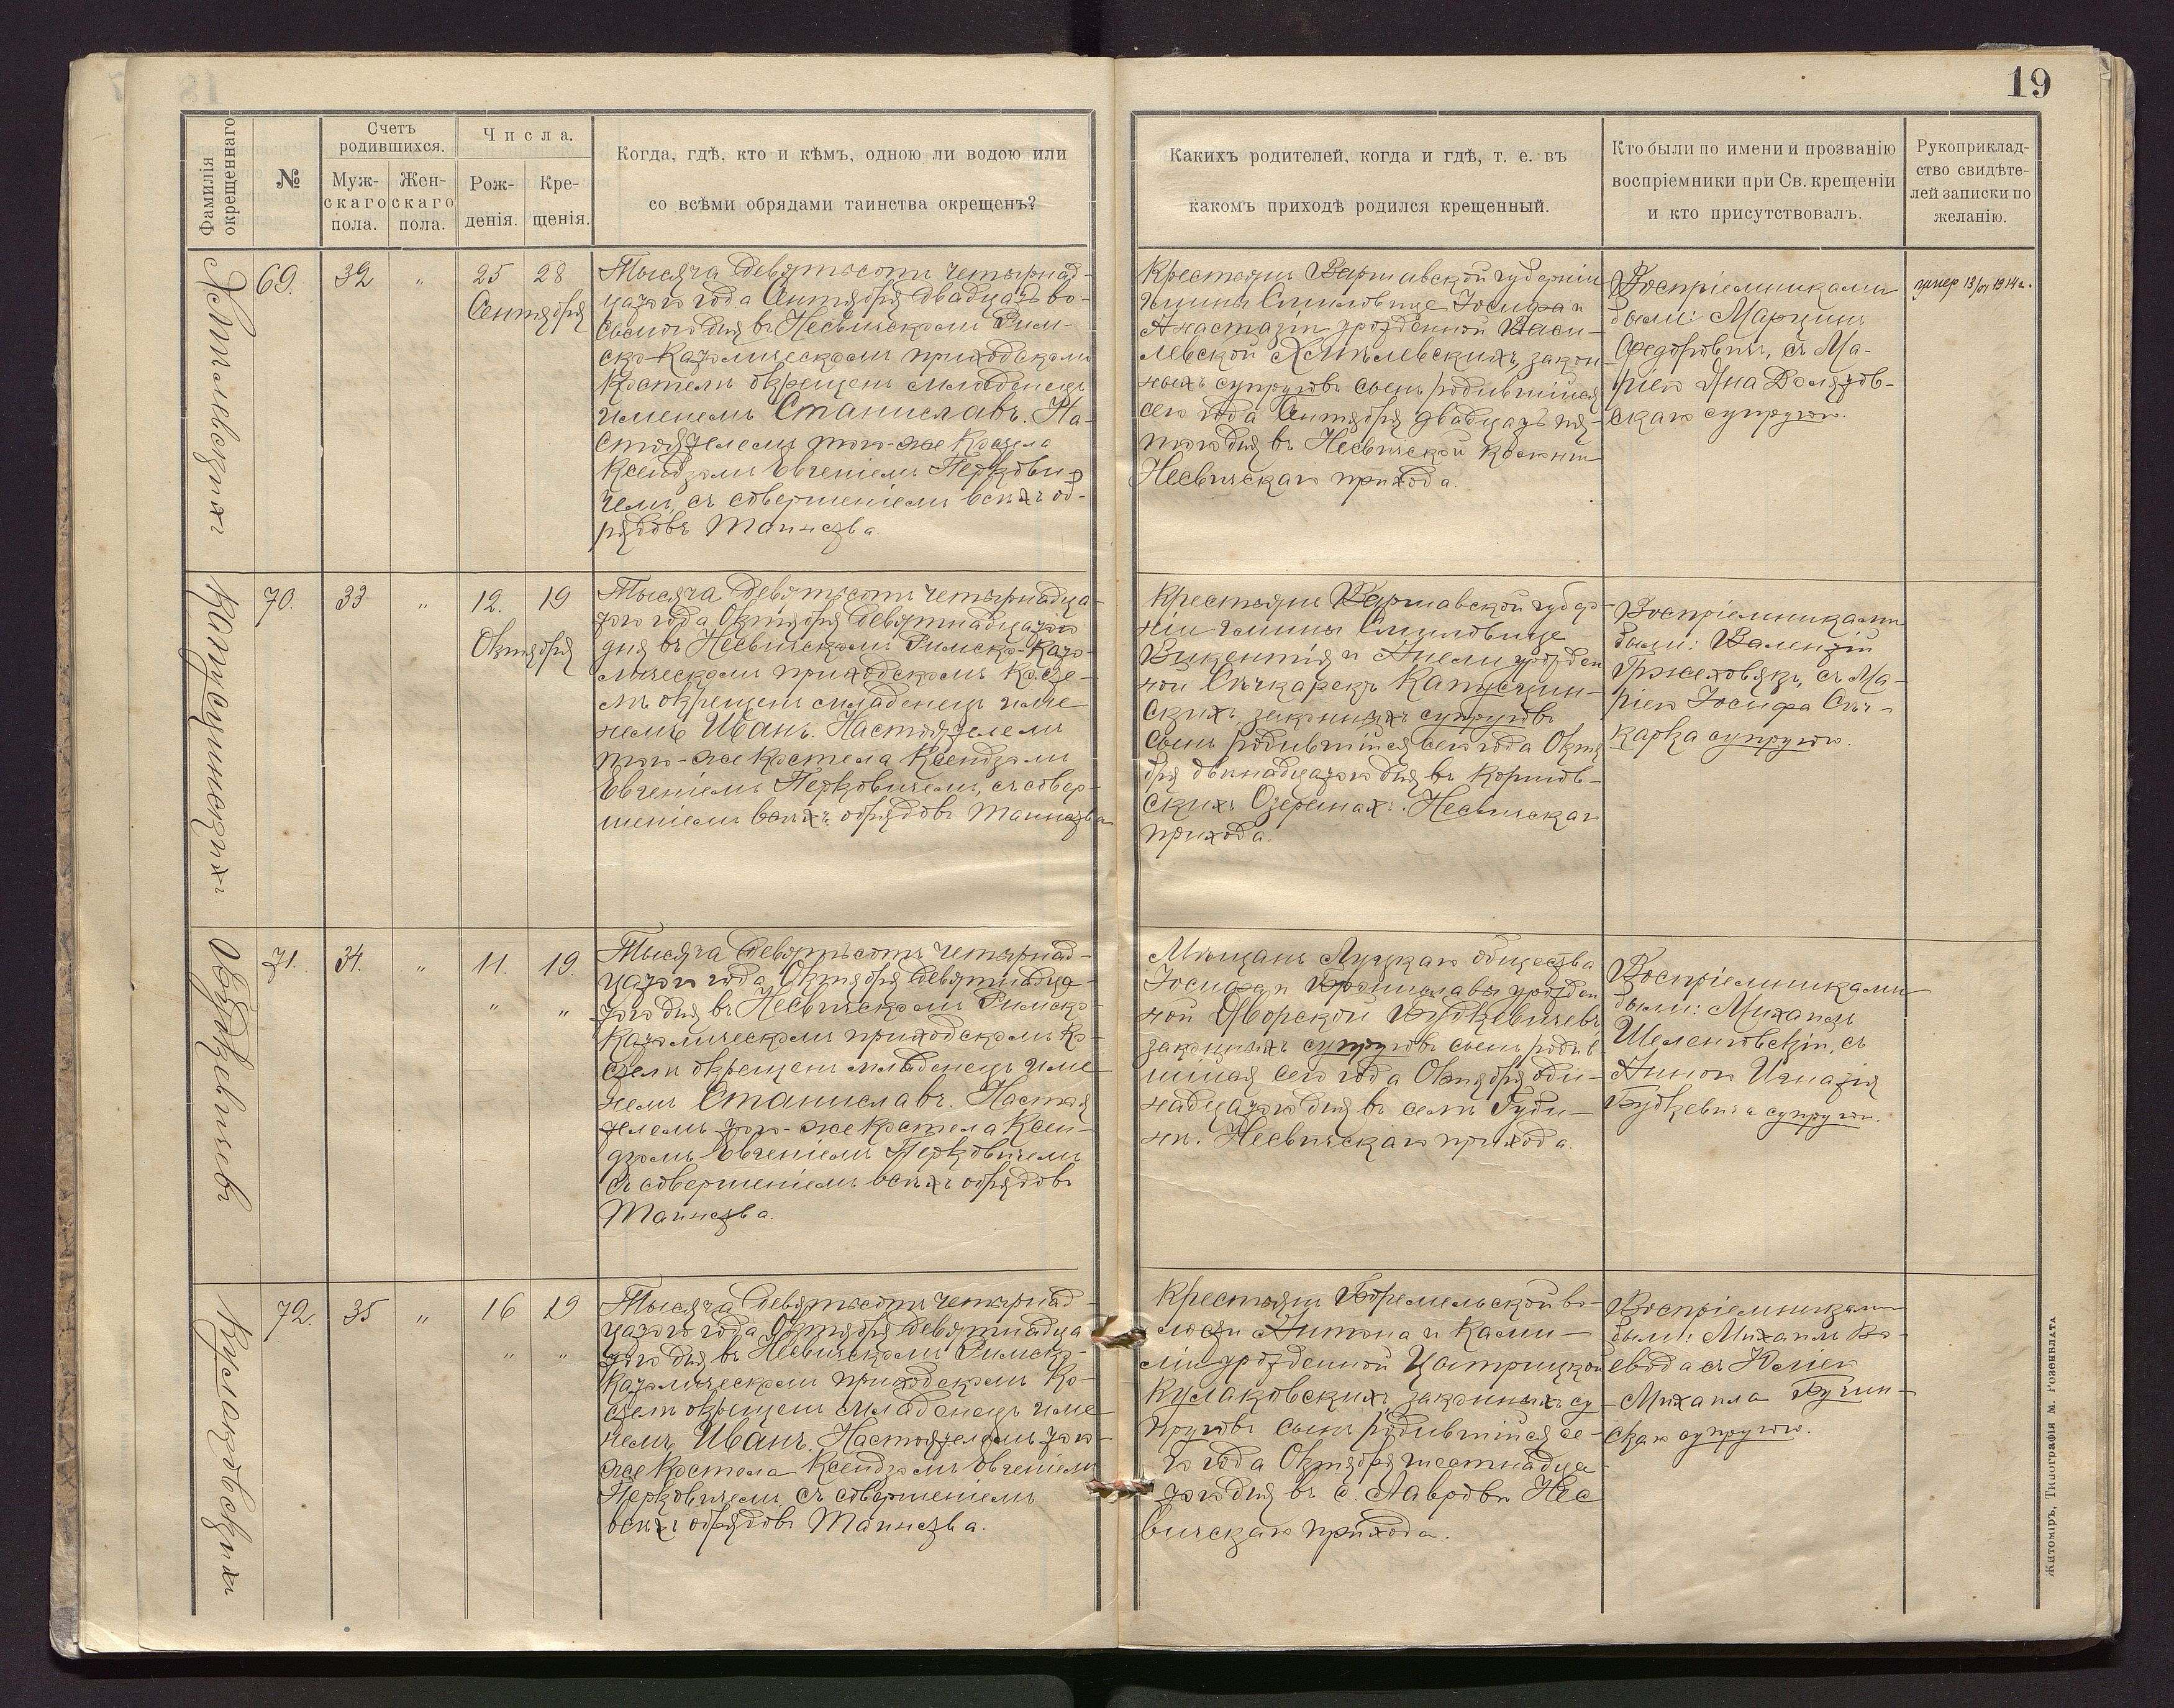 19
Фамилія окрещеннаго
№
Счетъ родившихся.
Мужскаго пола.
Женскаго пола.
Числа.
Рожденія.
Крещенія.
Когда, гдѣ, кто и кѣмъ, одною ли водою или
со всѣми обрядами таинства окрещенъ?
Какихъ родителей, когда и гдѣ, т. е. въ
какомъ приходѣ родился крещенный.
Кто были по имени и прозванію
воспріемники при Св. крещеніи
и кто присутствовалъ.
Рукоприклад-
ство свидѣте-
лей записки по
желанію.
Хмѣлевскихъ
69. 32 " 25 28
Сентября
Тысяча девятьсотъ четырнад-
цатого года Сентября двадцать во-
сьмого дня въ Несвичскомъ Рим-
ско-Католическомъ приходскомъ
Костелѣ окрещенъ младенецъ
именемъ Станиславъ. На-
стоятелемъ того-же Костела
Ксендзомъ Евгеніемъ Перкови-
чемъ, съ совершеніемъ всѣхъ об-
рядовъ Таинства.
Крестьянъ Варшавской губерніи
Гмины Слиповице Іосифа и
Анастазіи урожденной Васи-
левской Хмѣлевскихъ, закон-
ныхъ супруговъ сынъ, родившійся
сего года Сентября двадцать пя-
того дня въ Несвичской
Несвичскаго прихода.
Воспріемниками
были: Марцинъ
Федоровичъ, съ Ма-
ріею Яна
скаго супругою.
умер 1914 г.
Капусцинскихъ
70. 33 " 12. 19
Октября
Тысяча девятьсотъ четырнадца-
того года Октября девятнадцатого
дня въ Несвичскомъ Римско-Като-
лическомъ приходскомъ Косте-
лѣ окрещенъ младенецъ име-
немъ Иванъ. Настоятелемъ
того-же Костела Ксендзомъ
Евгеніемъ Перковичемъ, съ совер-
шеніемъ всѣхъ обрядовъ Таинства
Крестьянъ Варшавской губер-
ніи гмины Слиповице
Викентія и Анели урожден-
ной Капусцин-
скихъ, законныхъ супруговъ
сынъ, родившійся сего года Октя-
бря двѣнадцатого дня въ Коршов-
скихъ Озеранахъ. Несвичскаго
прихода.
Воспріемниками
были: Валентій
Гржеховякъ, съ Ма-
ріею Іосифа
супругою.
Будкевичевъ
71. 34. " 11. 19.
" "
Тысяча девятьсотъ четырнад-
цатого года Октября девятнадца-
того дня въ Несвичскомъ Римско-
Католическомъ приходскомъ Ко-
стелѣ окрещенъ младенецъ име-
немъ Станиславъ. Настоя-
телемъ того-же Костела Ксен-
дзомъ Евгеніемъ Перковичемъ
съ совершеніемъ всѣхъ обрядовъ
Таинства.
Мѣщанъ Луцкаго общества
Іосифа и Брониславы урожден-
ной Яворской Будкевичевъ
законныхъ супруговъ сынъ, родив-
шійся сего года Октября оди-
надцатого дня въ селѣ Губи-
нѣ. Несвичскаго прихода.
Воспріемниками
были: Михаилъ
Шеленговскій, съ
Анною Игнатія
Будкевича супругою.
Кулаковскихъ
72. 35 " 16 19
" "
Тысяча девятьсотъ четырнад-
цатого года Октября девятнадца-
того дня въ Несвичскомъ Римско-
Католическомъ приходскомъ Ко-
стелѣ окрещенъ младенецъ име-
немъ Иванъ. Настоятелемъ того-
же Костела Ксендзомъ Евгеніемъ
Перковичемъ, съ совершеніемъ
всѣхъ обрядовъ Таинства.
Крестьянъ Боремельской во-
лости Антона и Ками-
ліи урожденной
Кулаковскихъ, законныхъ су-
пруговъ сынъ, родившійся се-
го года Октября шестнадца-
того дня въ с. Лавровѣ Нес-
вичскаго прихода.
Воспріемниками
были: Михаилъ Во-
евода съ Юліею
Михаила Бучин-
скаго супругою.
Житоміръ, Типографія М. Розенблата